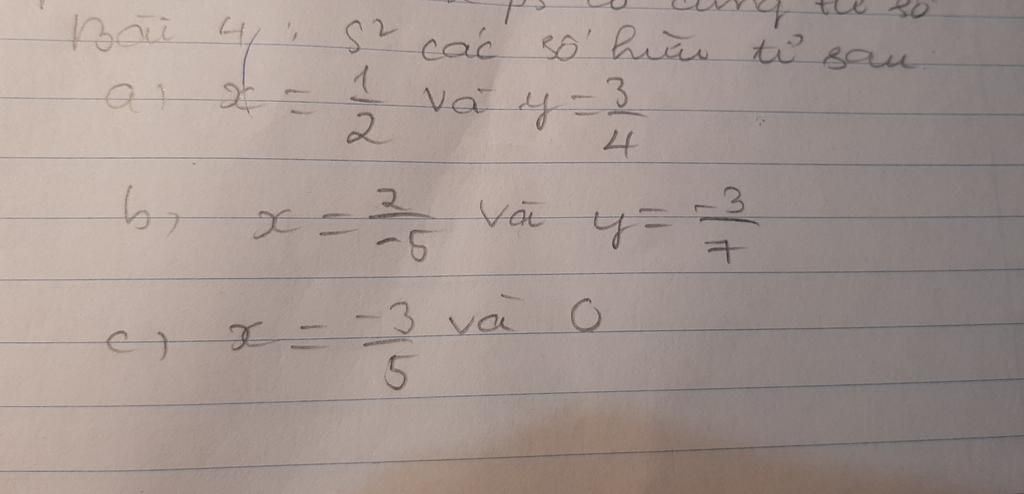 ps có cùng tử số
Bài 4 : S² các số hữu tỉ sau
a, x = 1/2 và y = 3/4
b, x = 2/-5 và y = -3/7
c, x = -3/5 và 0